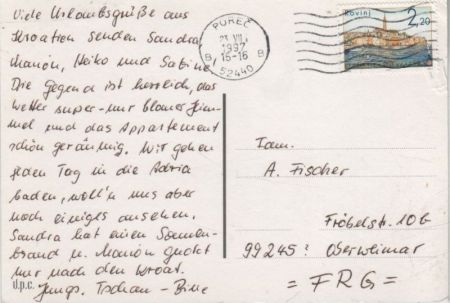 Viele Urlaubsgrüße aus
Kroatien senden Sandra
Manon, Heiko und Sabine
Die Gegend ist herrlich, das
Wetter super-nur blauer Him-
mel und das Appartement
schön geräumig. Wir gehen
jeden Tag in die Adria
baden, woll'n uns aber
noch einiges ansehen.
Sandra hat einen Sonnen-
brand u. Manon guckt
nur nach den kroat.
Jungs. Tschau - Bine
d.p.c.
POREČ
23. VII.
1997
15-16
B B
52440
Rovinj
2,20
Fam.
A. Fischer
Fröbelstr. 10b
99245 Oberweimar
= FRG =